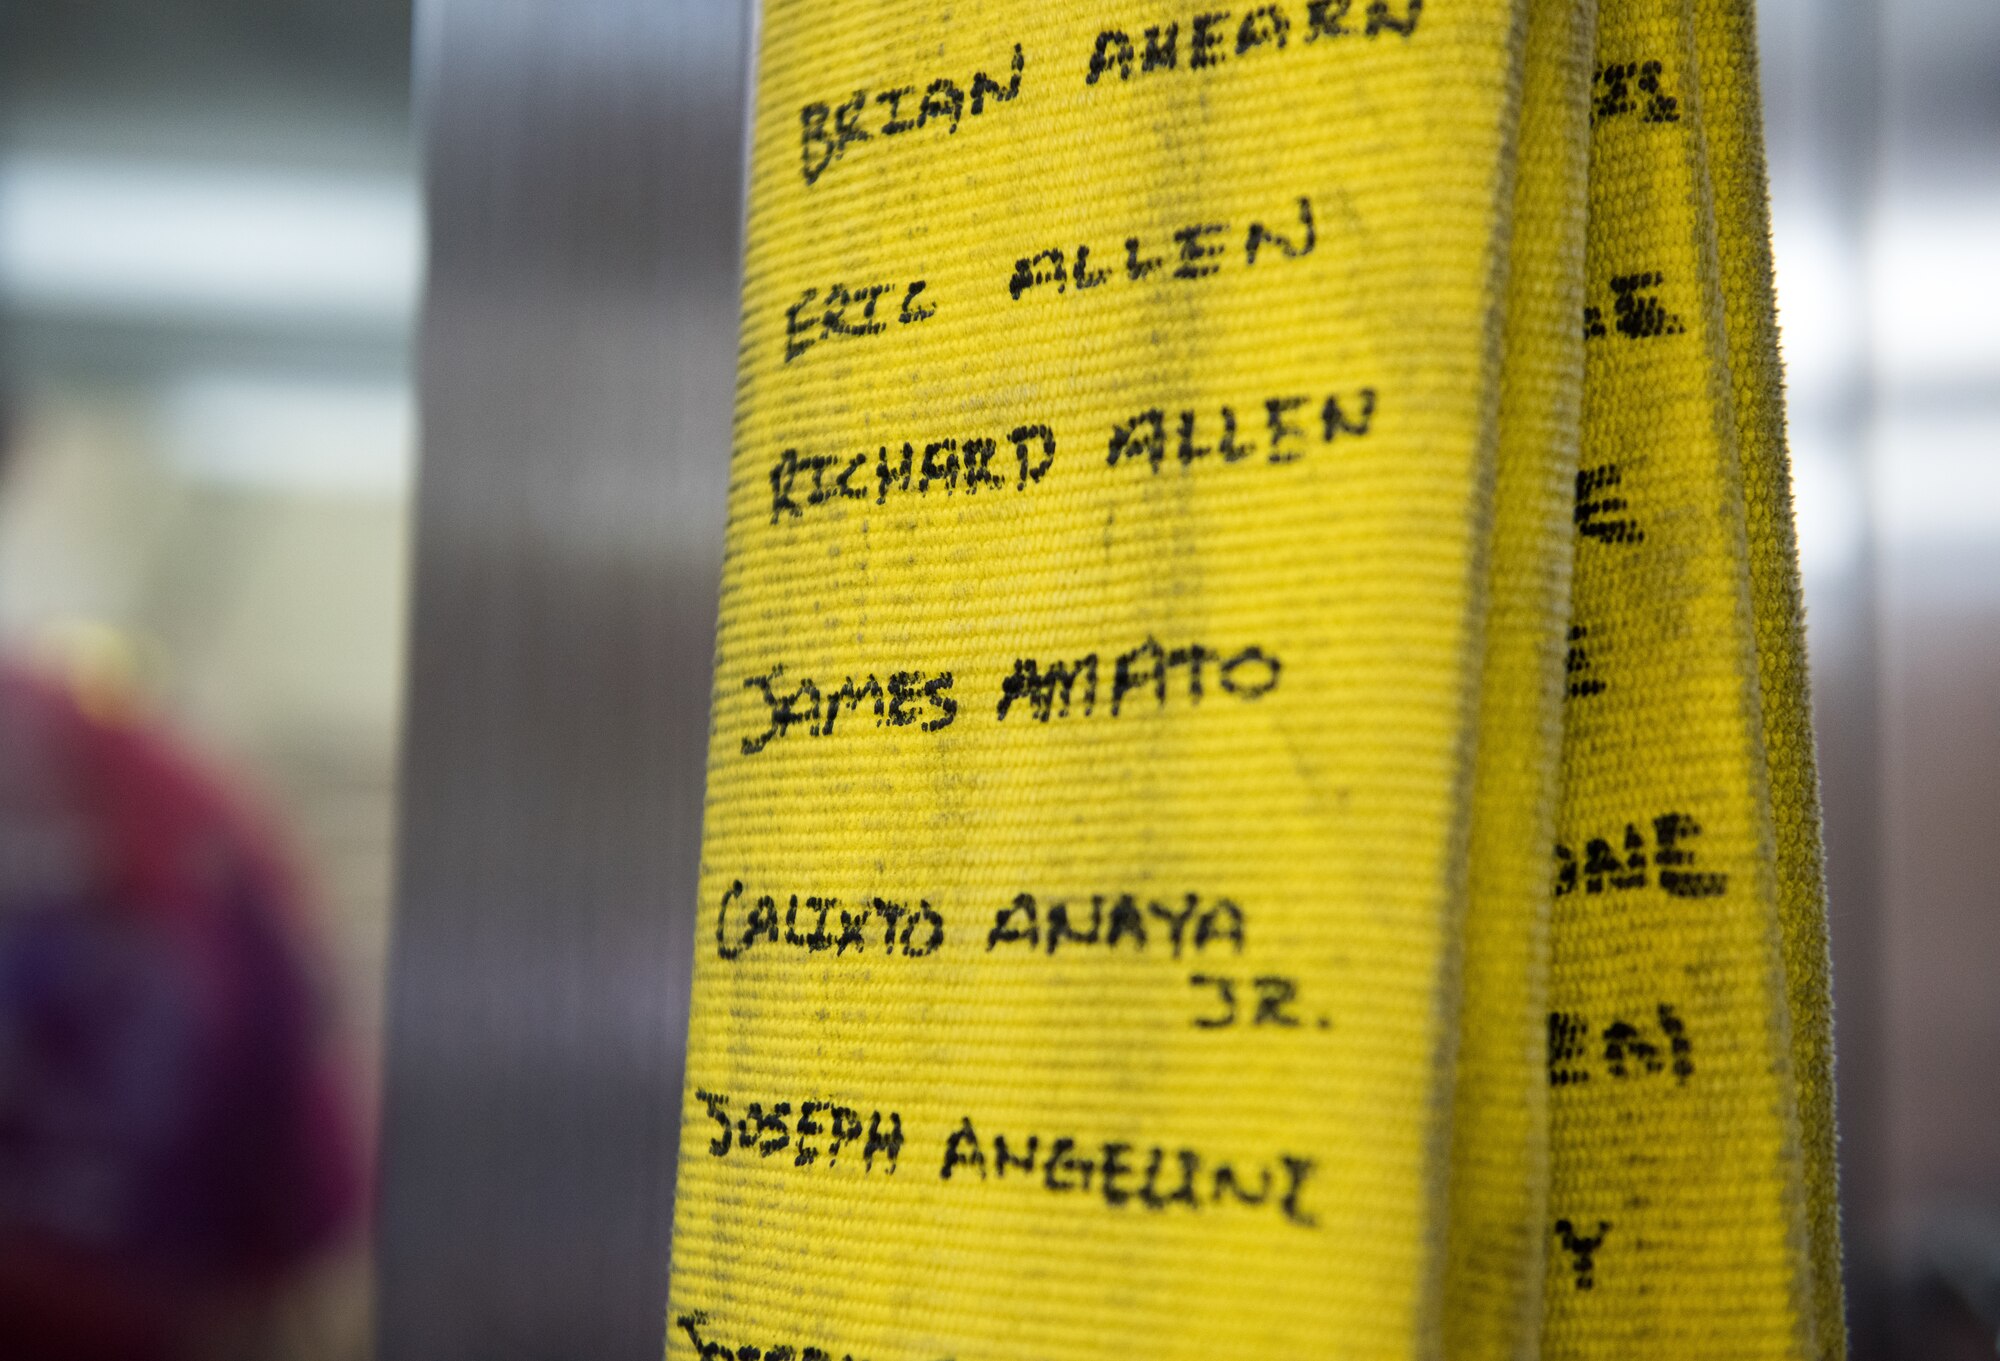 BRIAN AHEARN
ERIC ALLEN
RICHARD ALLEN
JAMES AMATO
CALIXTO ANAYA
JR.
JOSEPH ANGELINI